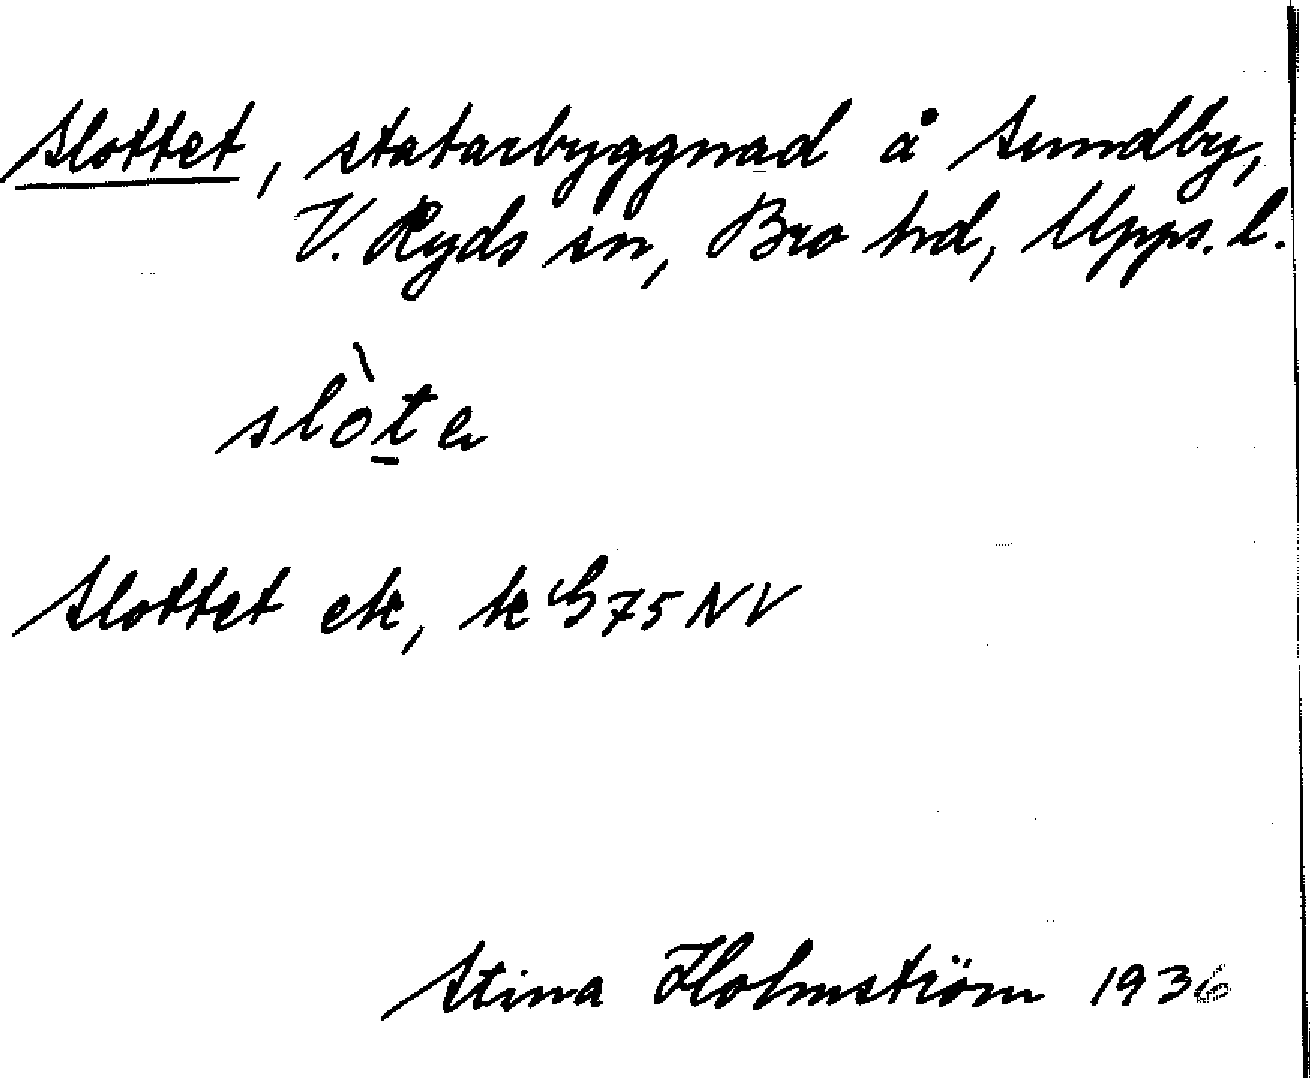 Slottet, statarbyggnad å Sundby,
V. Ryds sn, Bro hd, Upps. l.
slòte
Slottet ek, k G 75 NV
Stina Holmström 1936